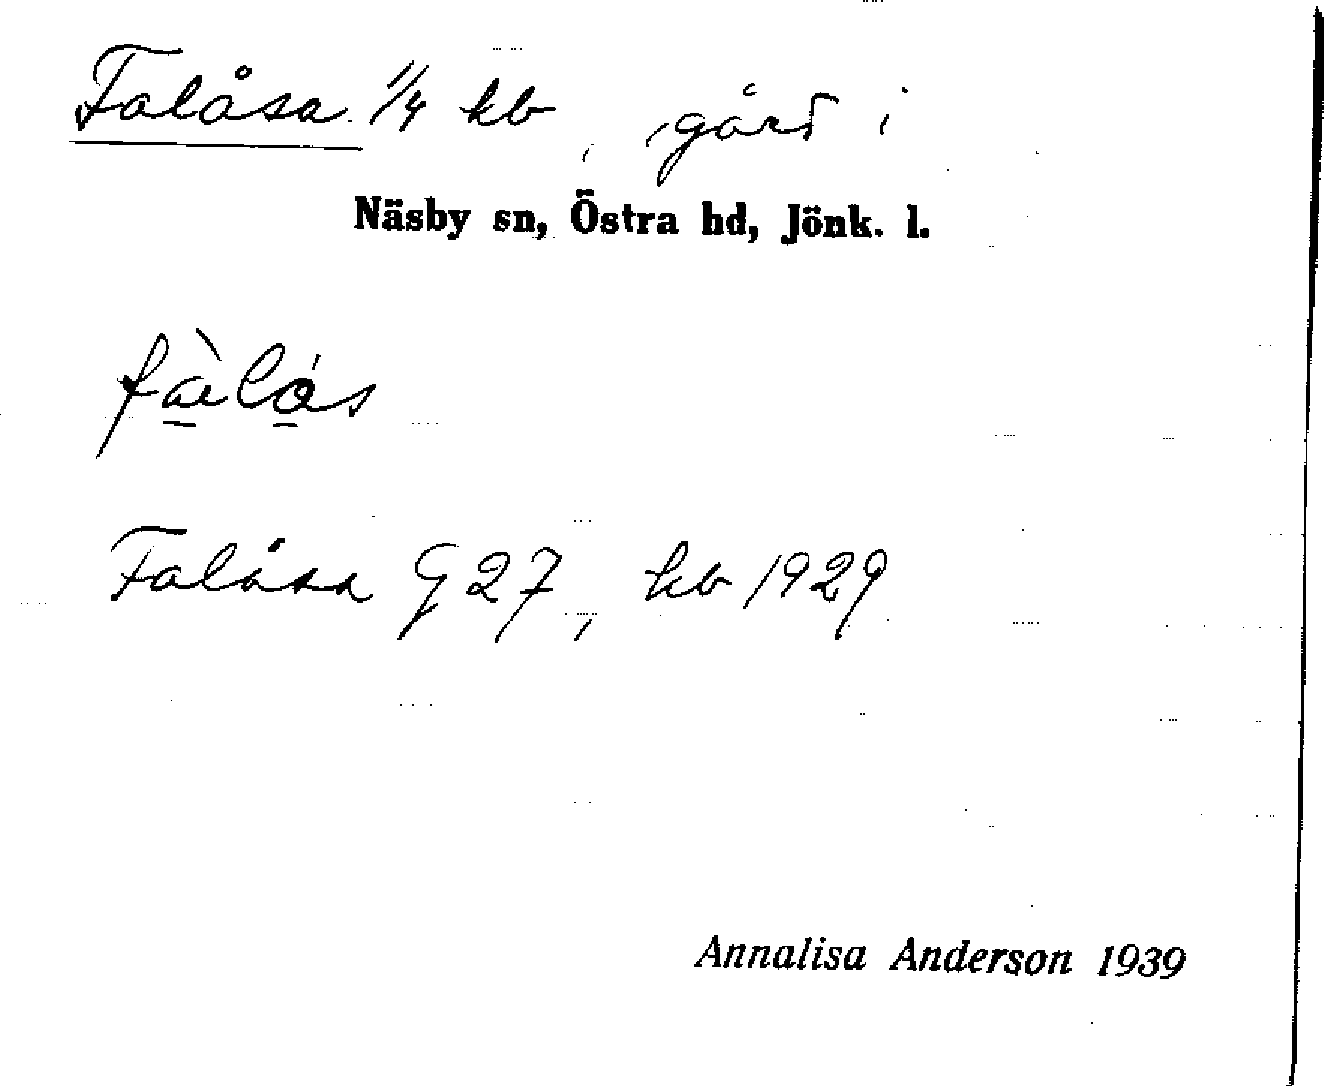 Falåsa 1/4 kb, gård i
Näsby sn, Östra hd, Jönk. l.
Falåsa G 27, kb 1929
Annalisa Anderson 1939